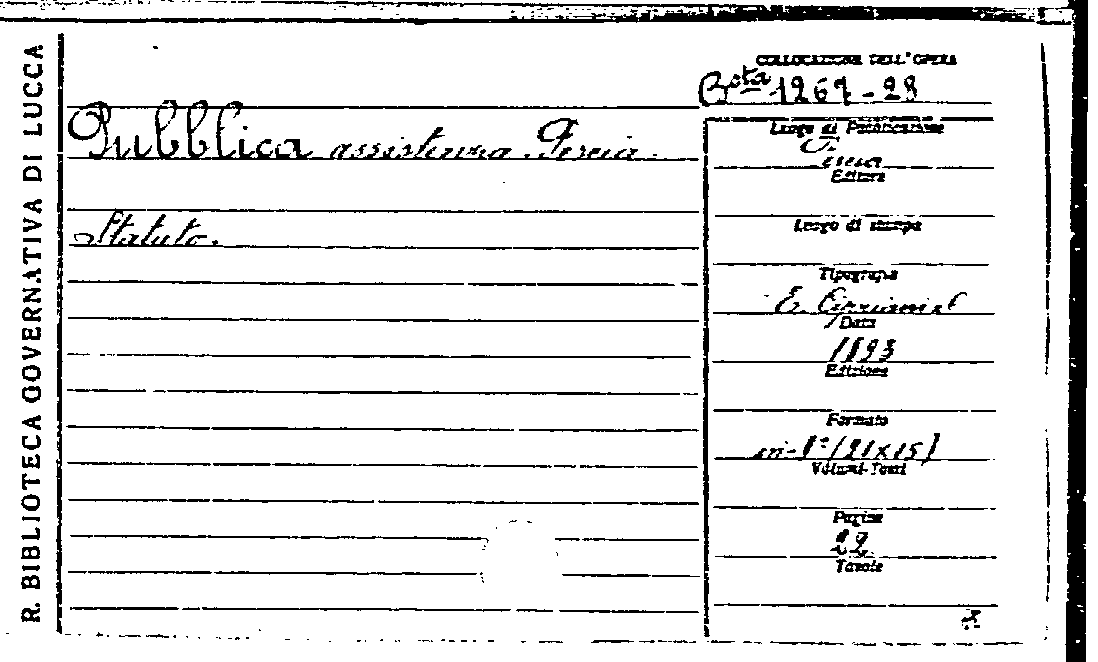 R. BIBLIOTECA GOVERNATIVA DI LUCCA
COLLOCAZIONE DELL'OPERA
Bsta 1267-28
Pubblica assistenza. Pescia.
Statuto.
Luogo di Pubblicazione
Editore
Luogo di stampa
Tipografia
E.
Data
1893
Edizione
Formato
in-8º (21x15)
Volumi-Tomi
Pagine
22
Tavole